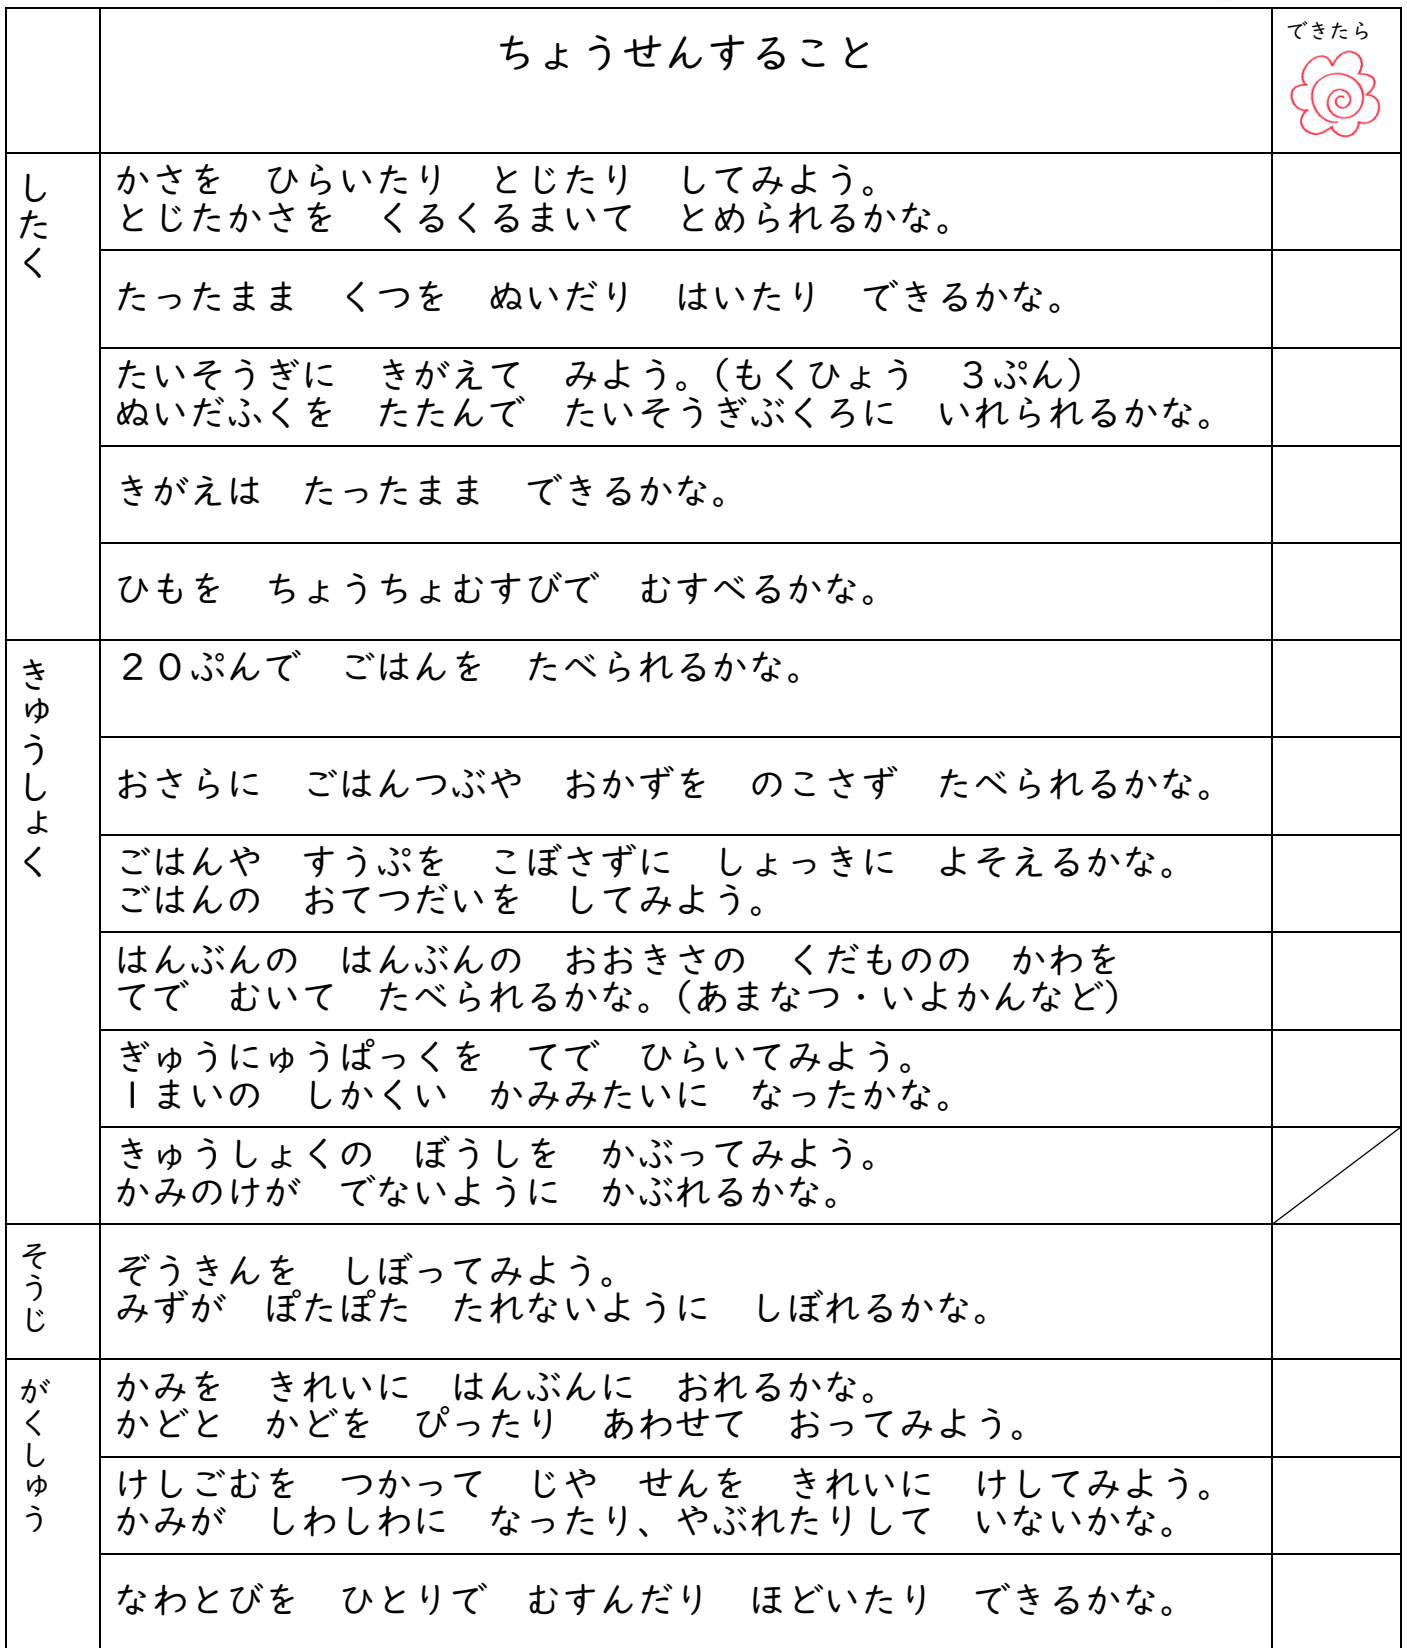 ちょうせんすること
できたら
したく
かさを　ひらいたり　とじたり　してみよう。
とじたかさを　くるくるまいて　とめられるかな。
たったまま　くつを　ぬいだり　はいたり　できるかな。
たいそうぎに　きがえて　みよう。（もくひょう　３ぷん）
ぬいだふくを　たたんで　たいそうぎぶくろに　いれられるかな。
きがえは　たったまま　できるかな。
ひもを　ちょうちょむすびで　むすべるかな。
きゅうしょく
２０ぷんで　ごはんを　たべられるかな。
おさらに　ごはんつぶや　おかずを　のこさず　たべられるかな。
ごはんや　すうぷを　こぼさずに　しょっきに　よそえるかな。
ごはんの　おてつだいを　してみよう。
はんぶんの　はんぶんの　おおきさの　くだものの　かわを
てで　むいて　たべられるかな。（あまなつ・いよかんなど）
ぎゅうにゅうぱっくを　てで　ひらいてみよう。
１まいの　しかくい　かみみたいに　なったかな。
きゅうしょくの　ぼうしを　かぶってみよう。
かみのけが　でないように　かぶれるかな。
そうじ
ぞうきんを　しぼってみよう。
みずが　ぽたぽた　たれないように　しぼれるかな。
がくしゅう
かみを　きれいに　はんぶんに　おれるかな。
かどと　かどを　ぴったり　あわせて　おってみよう。
けしごむを　つかって　じや　せんを　きれいに　けしてみよう。
かみが　しわしわに　なったり、やぶれたりして　いないかな。
なわとびを　ひとりで　むすんだり　ほどいたり　できるかな。